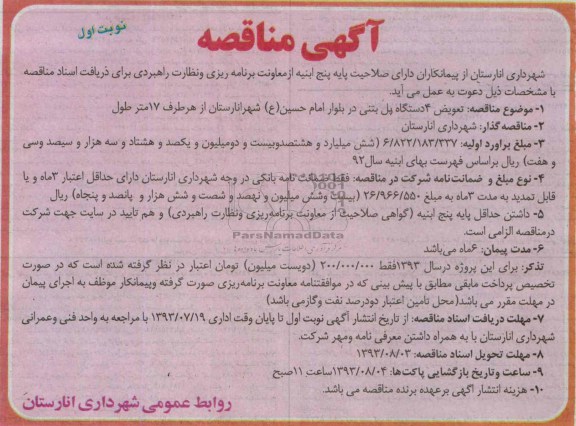 نوبت اول
آگهی مناقصه
شهرداری انارستان از پیمانکاران دارای صلاحیت پایه پنج ابنیه ازمعاونت برنامه ریزی ونظارت راهبردی برای ذریافت اسناد مناقصه
با مشخصات ذیل دعوت به عمل می آید.
۱- موضوع مناقصه: تعویض ۴دستگاه پل بتنی در بلوار امام حسین(ع) شهرانارستان از هرطرف ۱۷متر طول
۲- مناقصه گذار: شهرداری انارستان
۳- مبلغ براورد اولیه: ۶/۸۲۲/۱۸۳/۳۳۷ (شش میلیارد و هشتصدوبیست و دومیلیون و یکصد و هشتاد و سه هزار و سیصد وسی
و هفت) ریال براساس فهرست بهای ابنیه سال۹۲
۴- نوع مبلغ و ضمانت‌نامه شرکت در مناقصه: فقط ضمانت نامه بانکی در وجه شهرداری انارستان دارای حداقل اعتبار ۳ماه و یا
قابل تمدید به مدت ۳ماه به مبلغ ۲۶/۹۶۶/۵۵۰ (بیست وشش میلیون و نهصد و شصت و شش هزار و پانصد و پنجاه) ریال
۵- داشتن حداقل پایه پنج ابنیه (گواهی صلاحیت از معاونت برنامه‌ریزی ونظارت راهبردی) و هم تایید در سایت جهت شرکت
درمناقصه الزامی است.
ParsNamadData
۶- مدت پیمان: ۶ماه می‌باشد
تذکر: برای این پروژه درسال ۱۳۹۳فقط ۲۰۰/۰۰۰/۰۰۰ (دویست میلیون) تومان اعتبار در نظر گرفته شده است که در صورت
تخصیص پرداخت مابقی مطابق با پیش بینی که در موافقتنامه معاونت برنامه‌ریزی صورت گرفته وپیمانکار موظف به اجرای پیمان
در مهلت مقرر می باشد(محل تامین اعتبار دودرصد نفت وگازمی باشد)
۷- مهلت دریافت اسناد مناقصه: از تاریخ انتشار آگهی نوبت اول تا پایان وقت اداری ۱۳۹۳/۰۷/۱۹ با مراجعه به واحد فنی وعمرانی
شهرداری انارستان با به همراه داشتن معرفی نامه ومهر شرکت.
۸- مهلت تحویل اسناد مناقصه: ۱۳۹۳/۰۸/۰۳
۹- ساعت وتاریخ بازگشایی پاکت‌ها: ۱۳۹۳/۰۸/۰۴ساعت ۱۱صبح
۱۰- هزینه انتشار آگهی برعهده برنده مناقصه می باشد.
روابط عمومی شهرداری انارستان